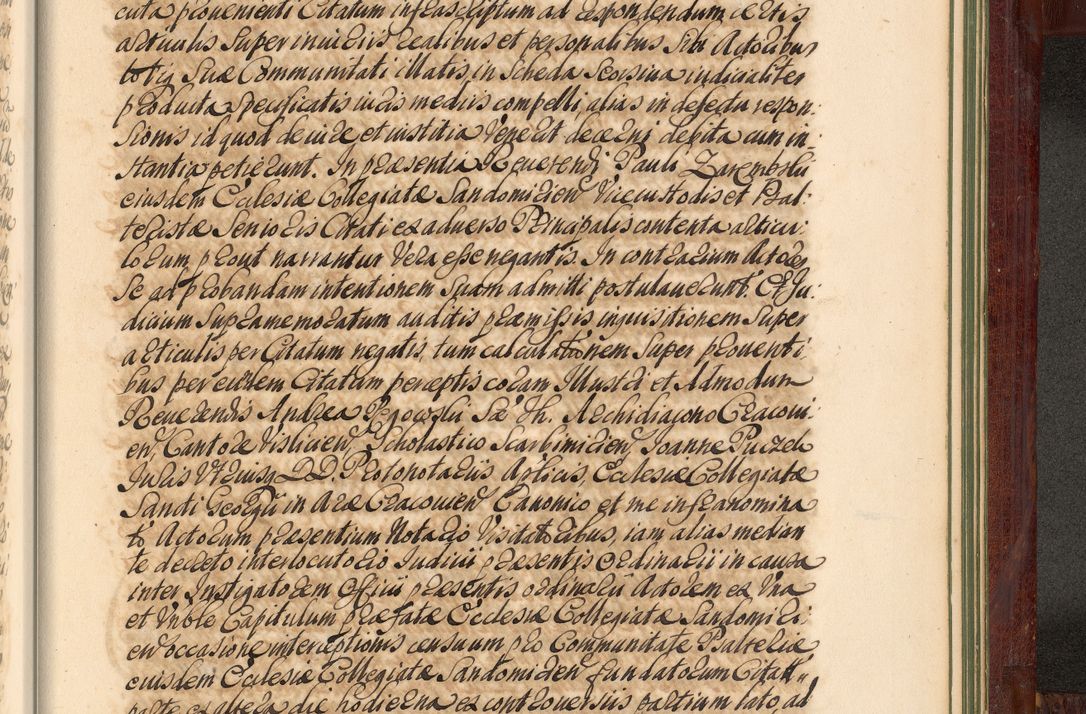 cuta provenienti Citatum infrascriptum ad respondendum certis
articulis super iniuriis realibus et personalibus sibi Actoribus
totiq Suæ Communitati illatis, in Scheda Seorsiva iudicialiter
producta specificatis iuris mediis compelli alias in defectu respon:
sionis id quod de iure et iustitia venerit decerni debita cum in:
stantia petierunt. In præsentia Reverendi Pauli Zarembski
eiusdem Ecclesiæ Collegiatæ Sandomirien Vicecustodis et Psal:
teristæ Senioris Citati ex adverso Principalis contenta articu:
lorum, prout narrantur vera esse negantis. In contrarium Actores
se ad probandam intentionem suam admitti postulaverunt. Et Ju:
dicium Supramemoratum auditis præmissis inquisitionem super
articulis per Citatum negatis, tum calculationem super proventi
bus per eundem Citatum perceptis coram Illustri et Admodum
Reverendis Andrea Pegowski S. Th. Archidiacono Cracovi:
en Cantore Vislicien, Scholastico Scarbimirien, Joanne Puczek
Juris Utriusq DD. Protonotariis Apticis, Ecclesiæ Collegiatæ
Sancti Georgii in Arce Cracovien Canonico et me infranomina
to Actorum præsentium Notario Visitatoribus, iam alias median
te decreto interlocutorio Judicii præsentis ordinarii in causa
inter Instigatorem Officii præsentis ordinarii Actorem ex Una
et Vnble Capitulum præfatæ Ecclesiæ Collegiatæ Sandomiri:
en occasione interceptionis censuum pro Communitate Psalteriæ
eiusdem Ecclesiæ Collegiatæ Sandomirien fundatorum Citatt
parte ex altera die hodierna ex controversiis partium lato, ad